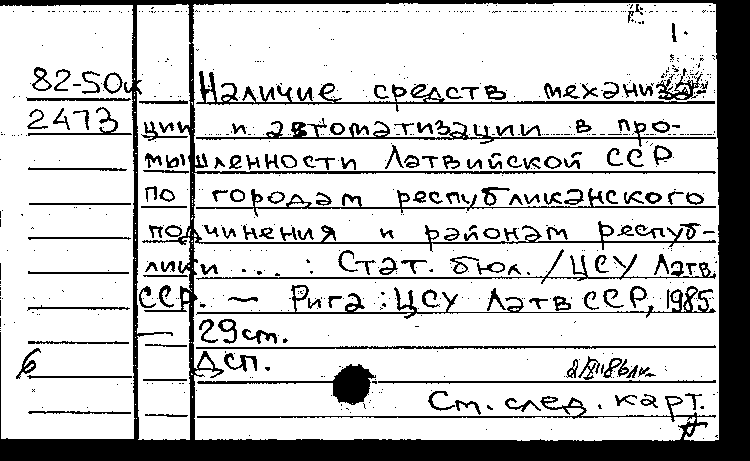 1.
82-50к Наличие средств механиза-
2473 ции и автоматизации в про-
мышленности Латвийской ССР
по городам республиканского
подчинения и районам респуб-
лики ... : Стат. бюл. / ЦСУ Латв.
ССР. — Рига : ЦСУ Латв ССР, 1985.
— 29 ст.
б ДСП.
См. след. карт.